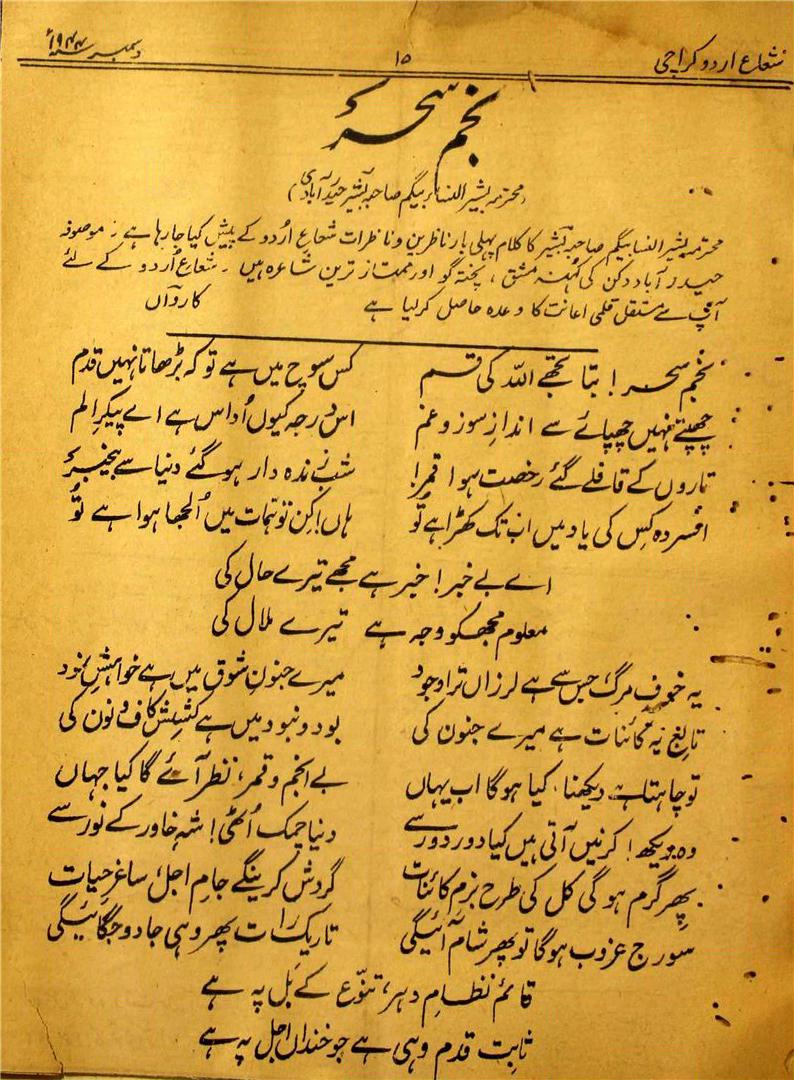 شعاع اردو کراچی ۱۵ دسمبر سنہ ۱۹۴۴ء
نجم سحر سے
(محترمہ بشیر النساء بیگم صاحبہ بشیر حیدرآبادی)
محترمہ بشیر النسا بیگم صاحبہ بشیر کا کلام پہلی بار ناظرین و ناظرات شعاعِ اُردو کے پیش کیا جا رہا ہے ۔ موصوفہ
حیدر آباد دکن کی کُہنہ مشق ، پختہ گو اور ممتاز ترین شاعرہ ہیں ۔ شعاعِ اُردو کے لئے
آپ سے مستقل قلمی اعانت کا وعدہ حاصل کر لیا ہے کارواں
نجم سحر ! بتا تجھے اللہ کی قسم کس سوچ میں ہے تو کہ بڑھاتا نہیں قدم
چھپتے نہیں چھپائے سے اندازِ سوز و غم اس درجہ کیوں اُداس ہے اے پیکرِ الم
تاروں کے قافلے گئے رخصت ہوا قمر! شب زندہ دار ہو گئے دنیا سے بیخبر
افسردہ کِس کی یاد میں اب تک کھڑا ہے تُو ہاں! کِن توہمات میں اُلجھا ہوا ہے تُو
اے بے خبر! خبر ہے مجھے تیرے حال کی
معلوم مجھکو وجہ ہے تیرے ملال کی
یہ خوف مرگ جس سے ہے لرزاں ترا وجود میرے جنونِ شوق میں ہے خواہشِ نمود
تابع یہ کائنات ہے میرے جنون کی بود و نبود میں ہے کشِش کاف و نون کی
تو چاہتا ہے دیکھنا، کیا ہوگا اب یہاں بے انجم و قمر، نظر آئے گا کیا جہاں
وہ دیکھ! کرنیں آتی ہیں کیا دور دور سے دنیا چمک اُٹھی! شہِ خاور کے نور سے
پھر گرم ہو گی کل کی طرح بزمِ کائنات گردش کرینگے جامِ اجل، ساغرِ حیات
سورج غروب ہوگا تو پھر شام آئیگی تاریک رات پھر وہی جادو جگائیگی
قائم نظامِ دہر، تنوّع کے بَل پہ ہے
ثابت قدم وہی ہے جو خنداں اجل پہ ہے